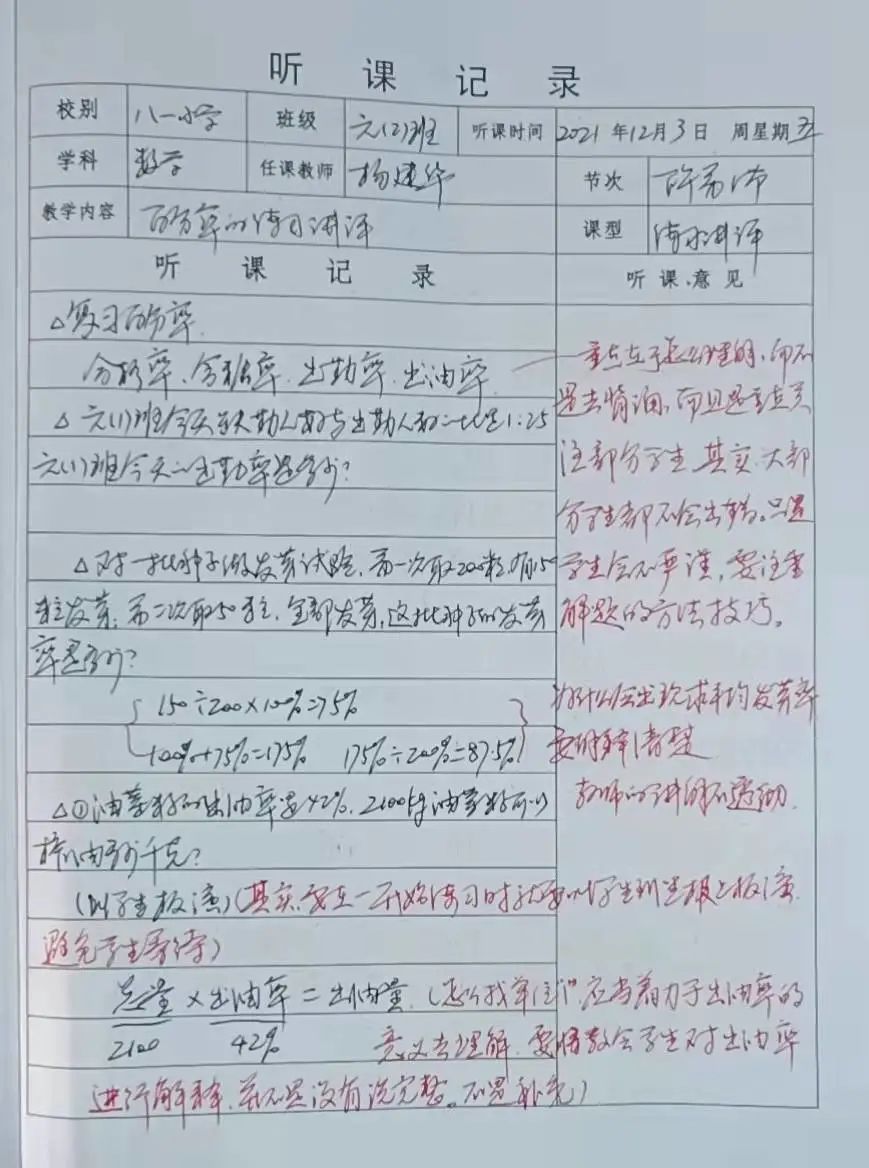 听课记录
校别 八一小学 班级 六(2)班 听课时间 2021年12月3日 周星期五
学科 数学 任课教师 杨建华 节次
教学内容 百分率的练习讲评 课型 练习讲评
听课记录 听课意见
△复习百分率.
合格率、含糖率.出勤率.出油率
△六(1)班今天缺勤人数与出勤人数的比是1:25
六(1)班今天的出勤率是多少?
△对一批种子做发芽试验,第一次取200粒,有150
粒发芽;第二次取50粒,全部发芽,这批种子的发芽
率是多少?
150÷200×100%=75%
100%+75%=175% 175%÷200%=87.5%
△①油菜籽的出油率是42%.2100kg油菜籽可以
榨油多少千克?
(叫学生板演)(其实要在一开始练习时就要叫学生到黑板上板演.
避免学生等待)
总量×出油率=出油量.(怎么找单位"1"应当着力于出油率的
2100 42% 意义去理解.要教会学生对出油率
进行解释.并不是没有说完整。不是补充)
重点在于怎么理解,而不
是去背诵,而且是重点关
注部分学生.其实大部
分学生都不会出错。只是
学生会不严谨,要注重
解题的方法技巧。
为什么会出现求平均发芽率
要解释清楚
教师的讲解不透彻.